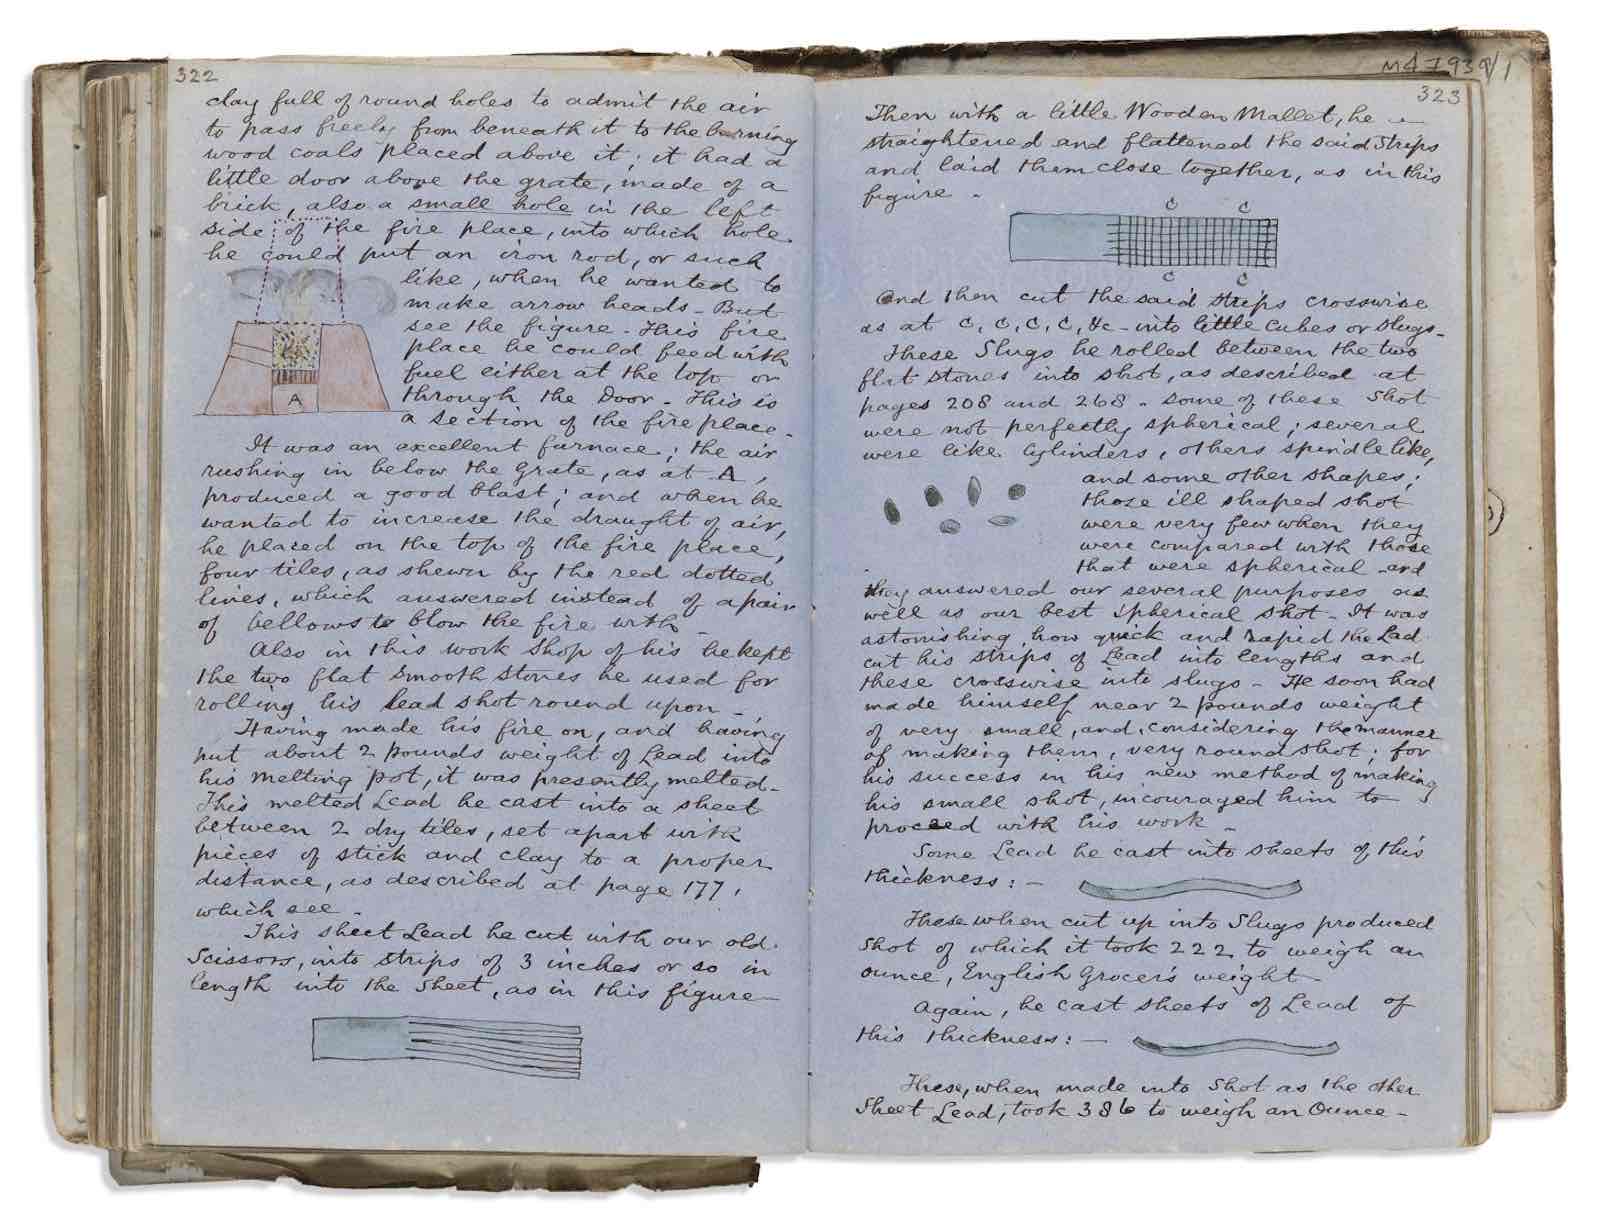 322
clay full of round holes to admit the air
to pass freely from beneath it to the burning
wood coals placed above it; it had a
little door above the grate, made of a
brick, also a small hole in the left
side of the fire place, into which hole
he could put an iron rod, or such
like, when he wanted to
make arrow heads - But
see the figure. This fire
place he could feed with
fuel either at the top or
through the Door - This is
a section of the fire place -
A
It was an excellent furnace; the air
rushing in below the Grate, as at A,
produced a good blast; and when he
wanted to increase the draught of air,
he placed on the top of the fire place,
four tiles, as shewn by the red dotted
lines, which answered instead of a pair
of bellows to blow the fire with -
Also in this work shop of his he kept
the two flat smooth stones he used for
rolling his lead shot round upon -
Having made his fire on, and having
put about 2 pounds weight of Lead into
his Melting pot, it was presently melted -
This melted Lead he cast into a sheet
between 2 dry tiles, set apart with
pieces of stick and clay to a proper
distance, as described at page 177,
which see -
This sheet Lead he cut with our old
Scissors, into strips of 3 inches or so in
length into the sheet, as in this figure -
M47939/1
323
Then with a little Wooden Mallet, he -
straightened and flattened the said Strips
and laid them close together, as in this
figure -
C C
C C
And then cut the said strips crosswise
as at C, C, C, C, &c - into little cubes or Slugs -
These Slugs he rolled between the two
flat stones into shot, as described at
pages 208 and 268 - some of these Shot
were not perfectly spherical; several
were like Cylinders, others spindle like,
and some other shapes;
those ill shaped shot
were very few when they
were compared with those
that were spherical - and
they answered our several purposes as
well as our best Spherical shot - It was
astonishing, how quick and rapid the Lad
cut his strips of Lead into lengths and
these crosswise into slugs - He soon had
made himself near 2 pounds weight
of very small, and, considering the manner
of making them, very round shot; for
his success in his new method of making
his small shot, incouraged him to
proceed with his work -
Some Lead he cast into sheets of this
thickness: -
These when cut up into Slugs produced
Shot of which it took 222 to weigh an
ounce, English Grocer's weight -
Again, he cast sheets of Lead of
this thickness: -
These, when made into Shot as the other
Sheet Lead, took 386 to weigh an Ounce -